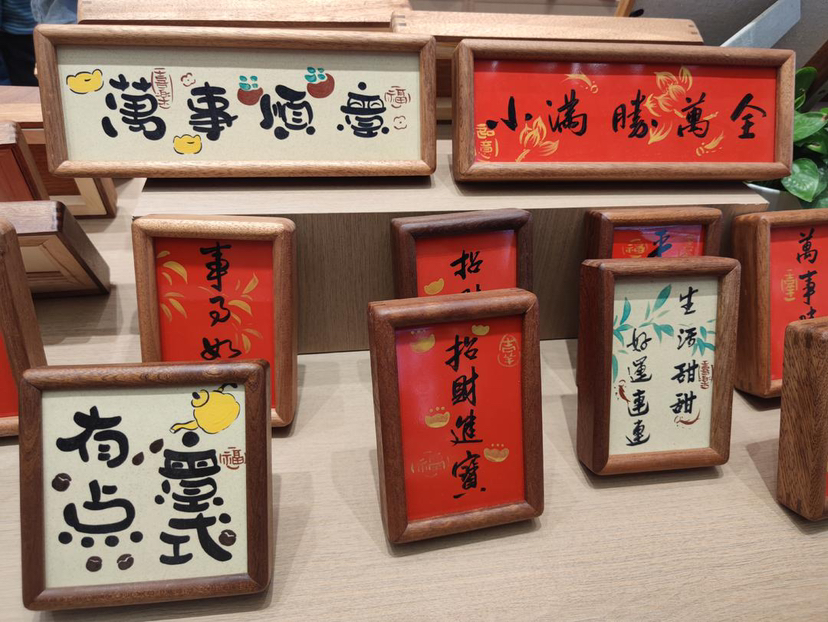 萬事順意
福
小滿勝萬全
事事如
招
招財進寶
平
福
生活甜甜
好運連連
萬事
有点
意式
福